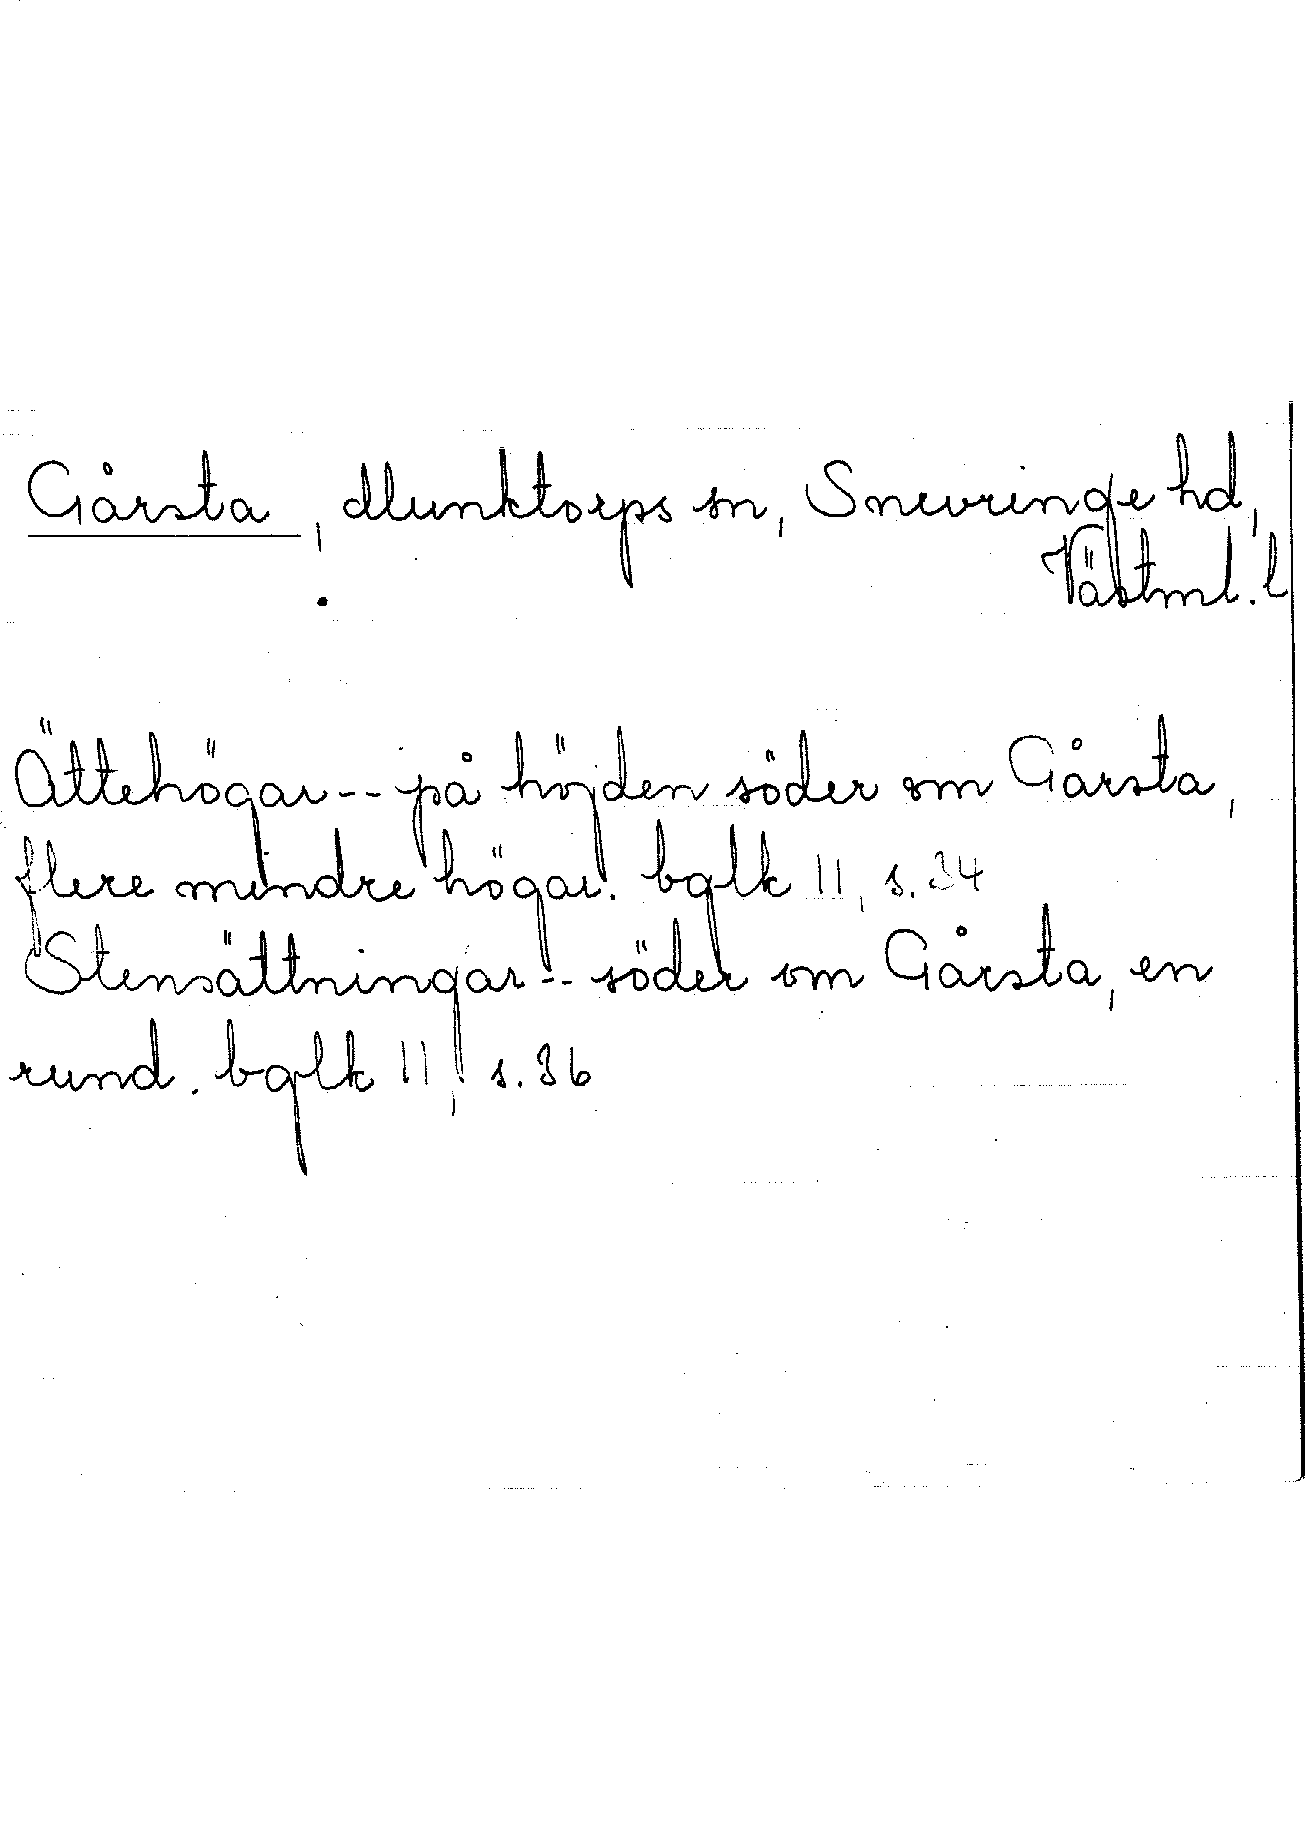 Gårsta, Munktorps sn, Snevringe hd,
Västml. l
Ättehögar -- på höjden söder om Gårsta,
flere mindre högar. bglk II, s. 34
Stensättningar -- söder om Gårsta, en
rund. bglk II, s. 36